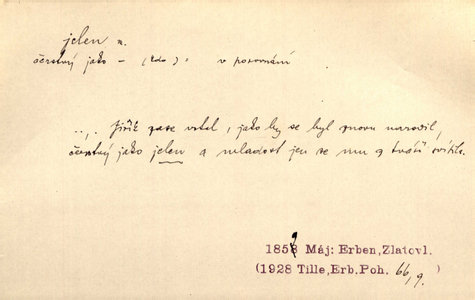 jelen n.
čerstvý jako – (kdo): v porovnání
..,. Jiřík zase vstal, jako by se byl znovu narodil,
čerstvý jako jelen a mladost jen se mu z tváří svítila.
1859 Máj: Erben, Zlatovl.
(1928 Tille, Erb. Poh. 66,9.)